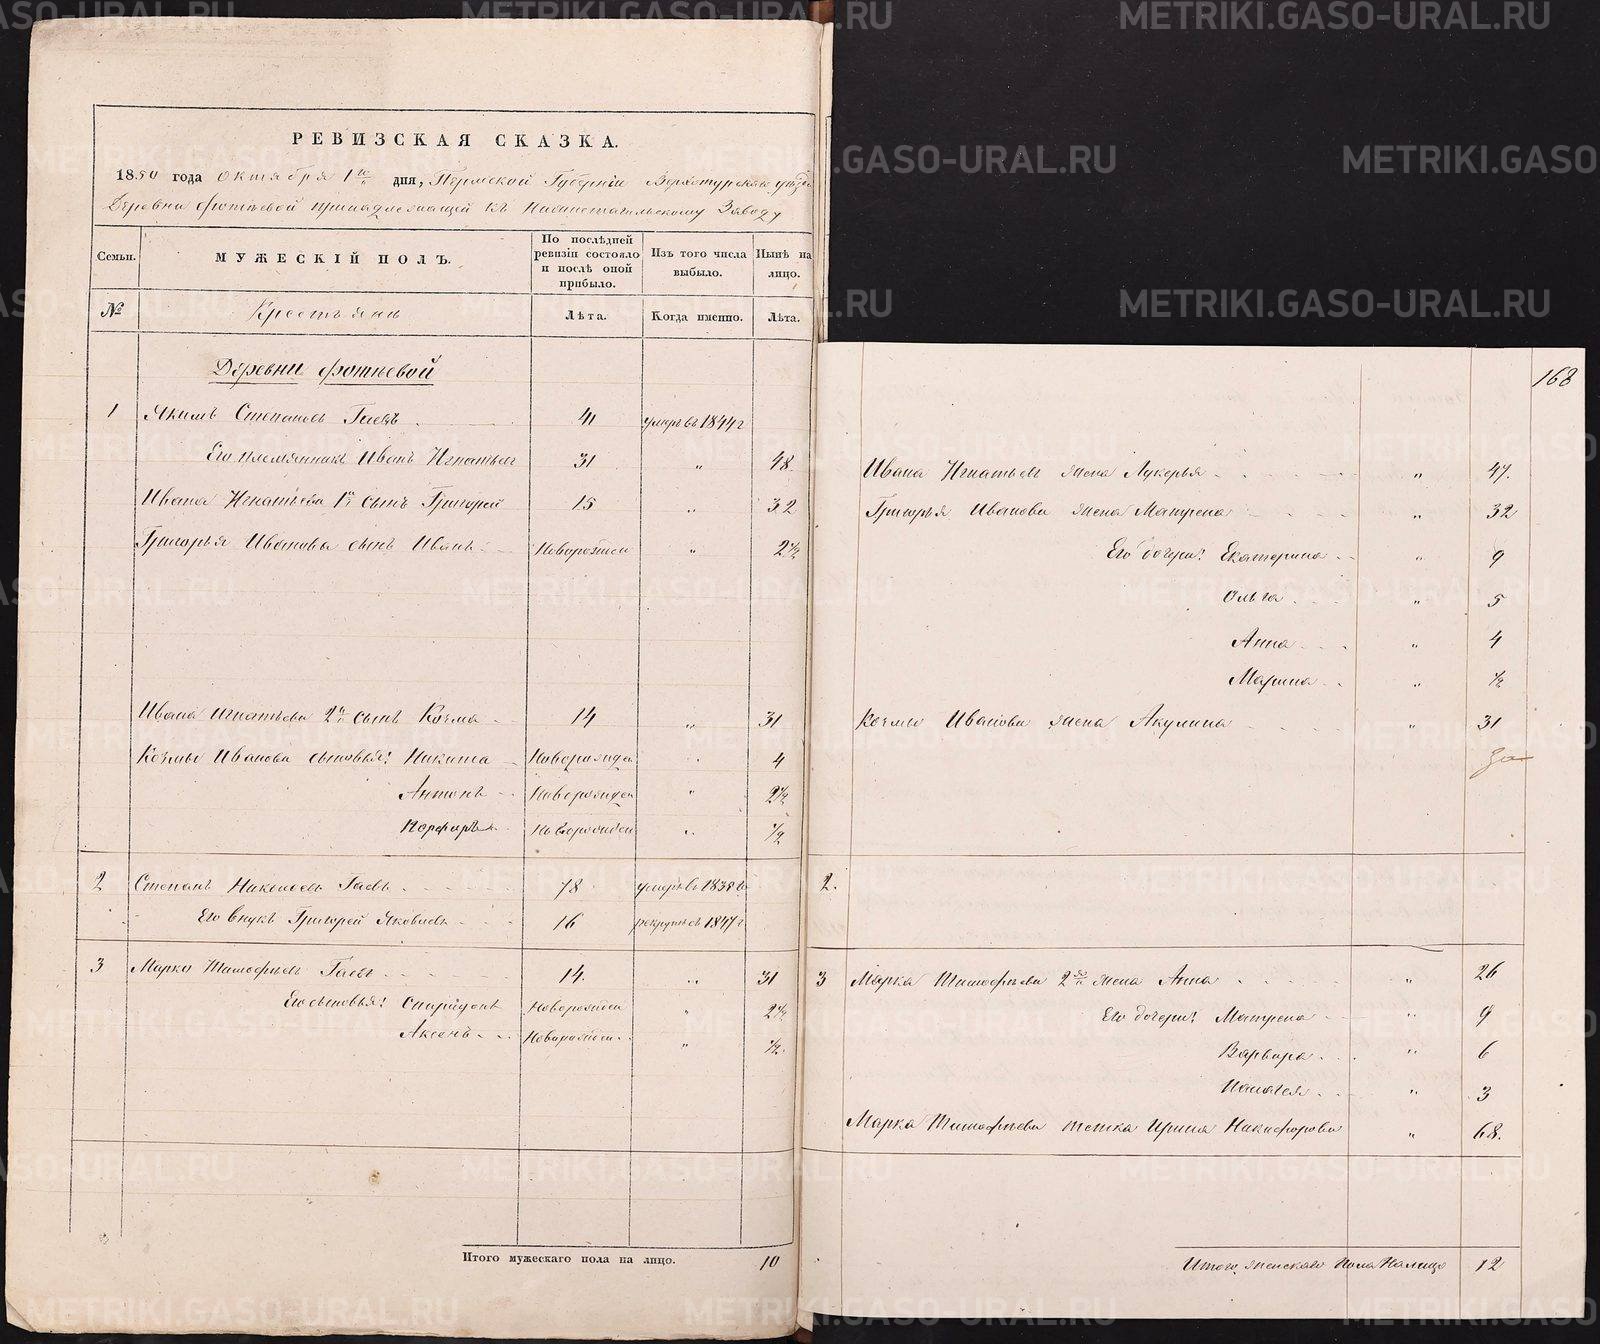 РЕВИЗСКАЯ СКАЗКА.
1850 года Октября 1го дня, Пермской Губернiи Верхотурскаго уезда
Деревни Фотѣевой принадлежащей къ Нижнетагильскому Заводу
Семьи.
МУЖЕСКІЙ ПОЛЪ.
По послѣдней ревизіи состояло и послѣ оной прибыло.
Изъ того числа выбыло.
Нынѣ на лицо.
№
Крестьянъ
Лѣта.
Когда именно.
Лѣта.
Деревни Фотѣевой
1 Якимъ Степановъ Гаевъ 41 умеръ въ 1844 г
Его племянникъ Иванъ Игнатьевъ 31 " 48
Ивана Игнатьева 1й сынъ Григорей 15 " 32
Григорья Иванова сынъ Иванъ Новорожден " 2½
Ивана Игнатьева 2й сынъ Козма 14 " 31
Козмы Иванова сыновья: Никита Новорожден " 4
Антонъ Новорожден " 2½
Порфиръ Новорожден " ½
2 Степанъ Николаевъ Гаевъ 78 умеръ въ 1838 г
Его внукъ Григорей Яковлевъ 16 рекрутъ съ 1847 г
3 Марко Тимофѣевъ Гаевъ 14. " 31
Его сыновья: Спиридонъ Новорожден " 2½
Аксенъ Новорожден " ½.
Итого мужескаго пола на лицо. 10
168
Ивана Игнатьева жена Лукерья " 47.
Григорья Иванова жена Матрена " 32
Его дочери: Екатерина " 9
Ольга " 5
Анна " 4
Марина " ½
Козмы Иванова жена Акулина " 31
2.
3 Марка Тимофѣева 2я жена Анна " 26
Его дочери: Матрена " 9
Варвара " 6
Палагея " 3
Марка Тимофѣева тетка Ирина Никифорова " 68.
Итого женскаго пола На лицо 12
METRIKI.GASO-URAL.RU